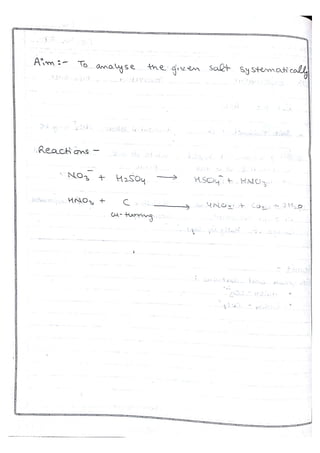 Aim:- To analyse the given salt systematically
Reactions -
NO3⁻ + H2SO4 ⟶ HSO4⁻ + HNO3
HNO3 + C ⟶ 4NO2 + CO2 + 2H2O